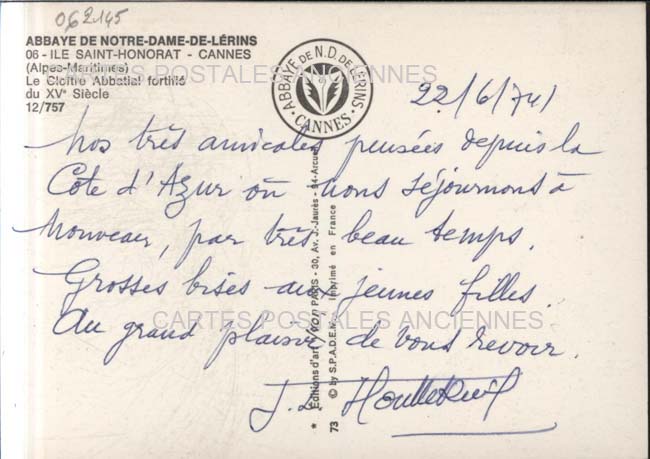 062145
ABBAYE DE NOTRE-DAME-DE-LÉRINS
06 - ILE SAINT-HONORAT - CANNES
(Alpes-Maritimes)
Le Cloître Abbatial fortifié
du XVe Siècle
12/757
ABBAYE DE N.D. DE LÉRINS
CANNES
CARTES POSTALES ANCIENNES
22/6/74
Nos très amicales pensées depuis la
Côte d'Azur où nous séjournons à
nouveau, par très beau temps.
Grosses bises aux jeunes filles.
Au grand plaisir de vous revoir.
J.
CARTES POSTALES ANCIENNES
* Éditions d'art "YVON" PARIS - 30, Av. J.-Jaurès - 94-Arcueil
73 © by S.P.A.D.E.M. Imprimé en France